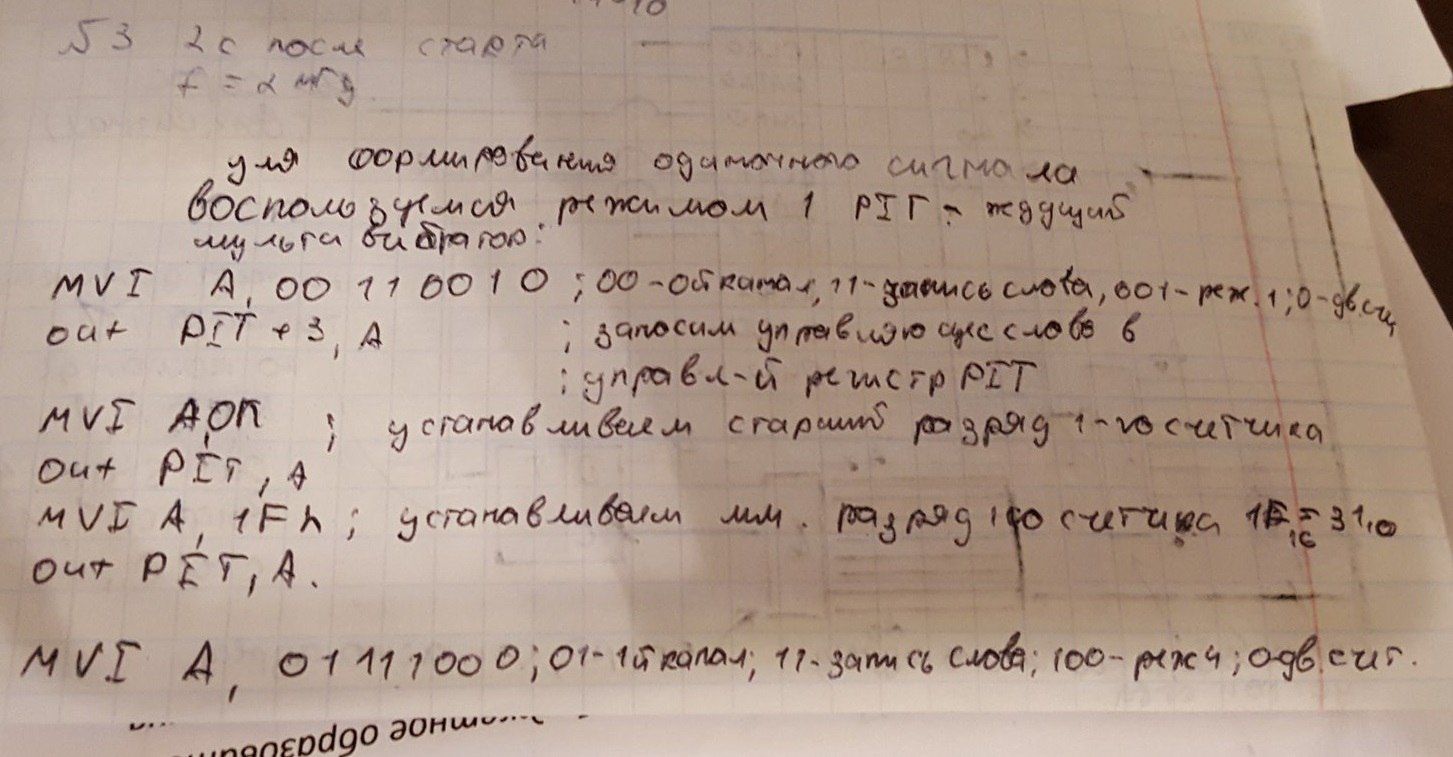 №3 2с после старта
f = 2 мгц
для формирования одиночного сигнала
воспользуемся режимом 1 PIT - ждущий
мультивибратор:
MVI A, 00 11 0010 ; 00-ой канал, 11-запись слова, 001-реж. 1; 0-дв.сч,
out PIT + 3, A ; заносим управляющее слово в
; управл-й регистр PIT
MVI A, ; устанавливаем старший разряд 1-го счетчика
out PIT, A
MVI A, 1Fh ; устанавливаем мл. разряд 1го счетчика 1F₁₆ = 31₁₀
out PIT, A.
MVI A, 01111000; 01-1й канал; 11-запись слова; 100-реж 4; 0дв.счт.